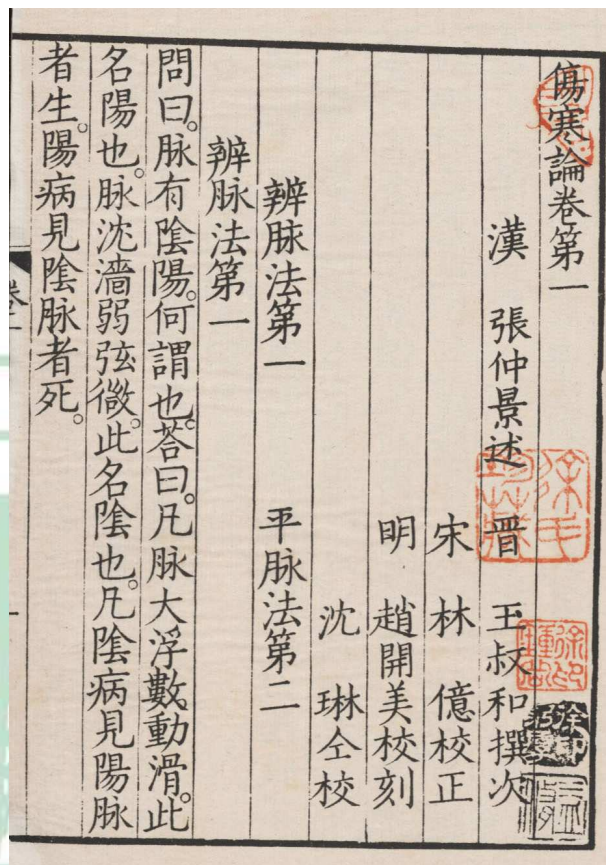 傷寒論卷第一
漢 張仲景述 晉 王叔和撰次
宋 林 億校正
明 趙開美校刻
沈 琳仝校
辨脉法第一 平脉法第二
辨脉法第一
問曰。脉有陰陽。何謂也。荅曰。凡脉大浮數動滑。此
名陽也。脉沈濇弱弦微。此名陰也。凡陰病見陽脉
者生。陽病見陰脉者死。